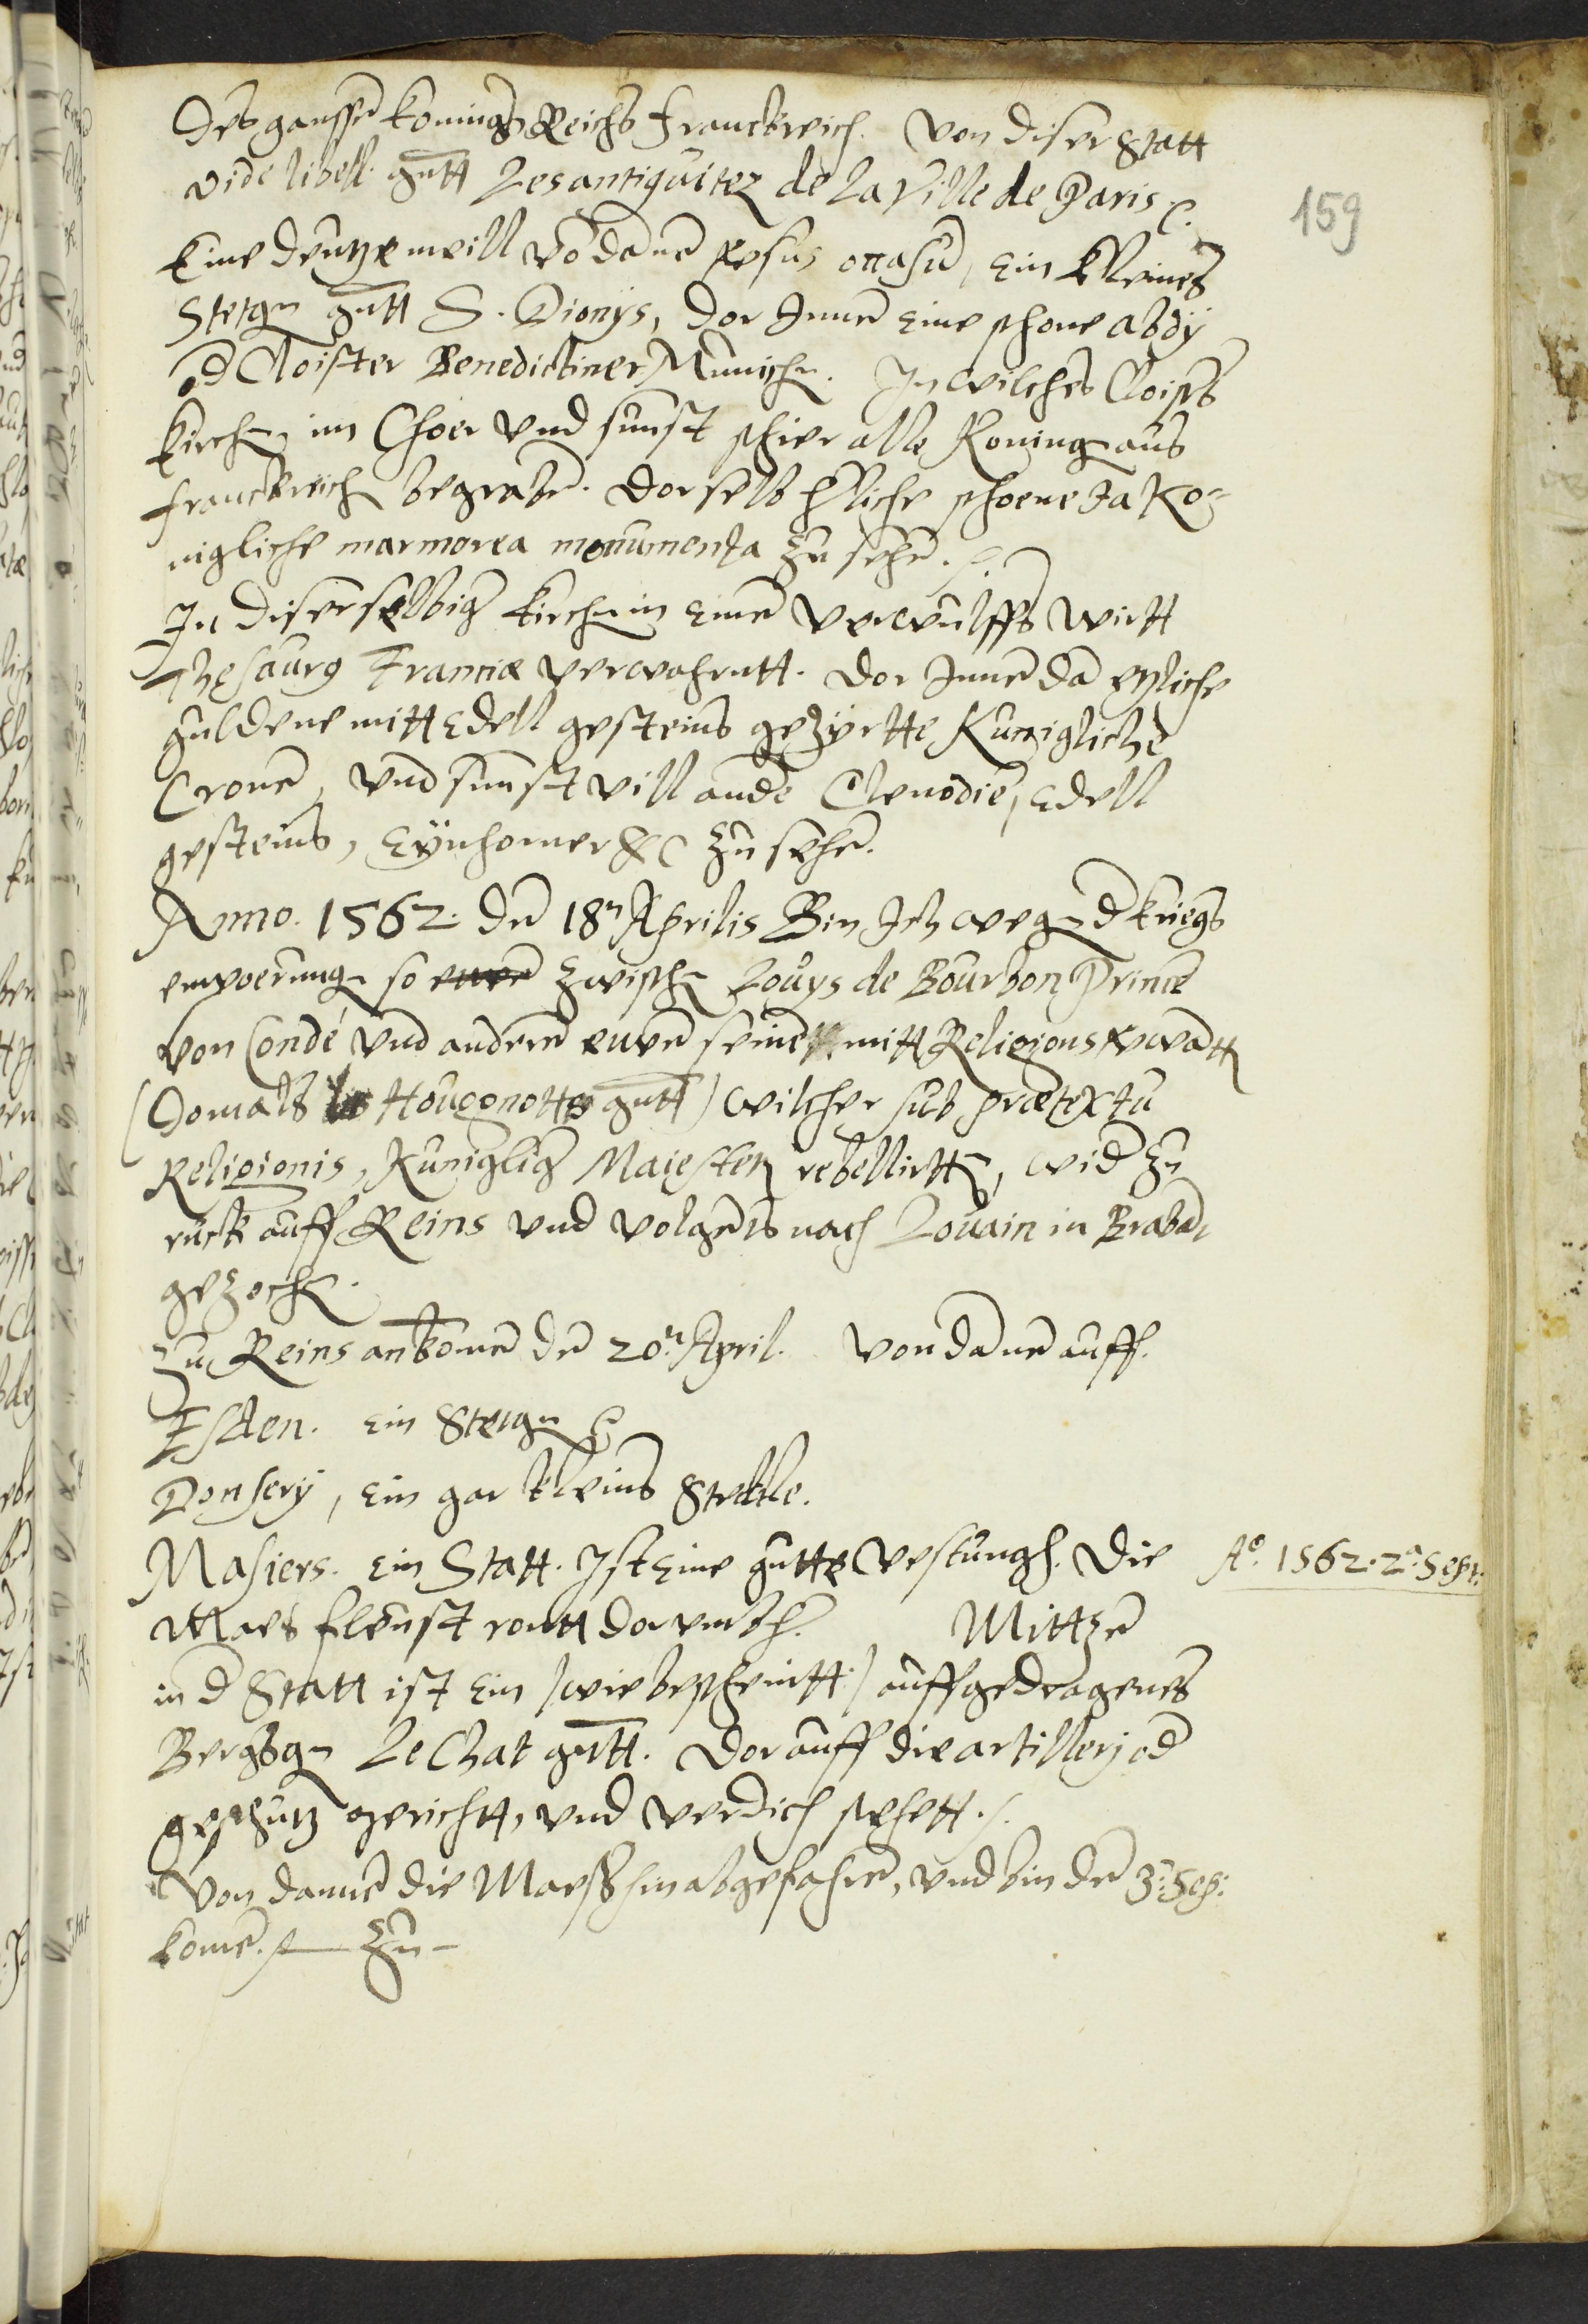 159
des gantzen konings Reichs franckreich. Von diser Statt
vide libell. gntt Les antiquitez de La Ville de Paris
Eine deutze meill vō danē versus occasū, ein kleines
Stetgn gntt S. Dionÿs, dor Innen eine schone abdÿ
od Cloister Benedictiner Munichen. In wilches Cloisters
kirchen im Choer vnd sunst schier alle Koning aus
franckreich begraben. Dorselb hliche schoene Ja Ko=
nigliche marmorea monumenta zu sehen.
In diserselbiger kirchen in einē verwulffts wirtt
Thesaurg Franciæ verwahrett. Dor Innen dā etzliche
guldene mitt Edell gesteins gezÿrtte Kuniglichē
Cronen, vnd sunst vill andē Clenodiē, Edell
gesteins, Eÿnhorner &c zu sehen.
Anno. 1562. den 18n Aprilis Bin Ich wegen d kriegs
empoerung so zwischen Louÿs de Bourbon Prince
von Condé vnd anderen seinen mitt Religions verwātt
(Domals les Hougonottes gntt) wilcher sub prætextu
Religionis, Kuniglicher Maiestett rebellirtten, wid zu
ruck auff Reins vnd volgents nach Louain in Brabāt
gezochen.
Zu Reins ankomen den 20n April. Von danē auff
Esden. ein Stetgn
Donserÿ, ein gar kleins Stettle.
Masiers. ein Statt. Ist eine gutte vestungh. Die
A⁰ 1562. 2ᵃ Sept:
Maes fleust rontt dorumbh. Mittzen
in d Statt ist ein (wie bescheintt) auffgedragenes
Bergsgn Le Chat gntt. Dor auff die artillerj od
geschutz gerichtt, vnd verdich stehett.
Von dannē die Maess hinabgefahren, vnd bin den 3n Sep:
komē. zu-